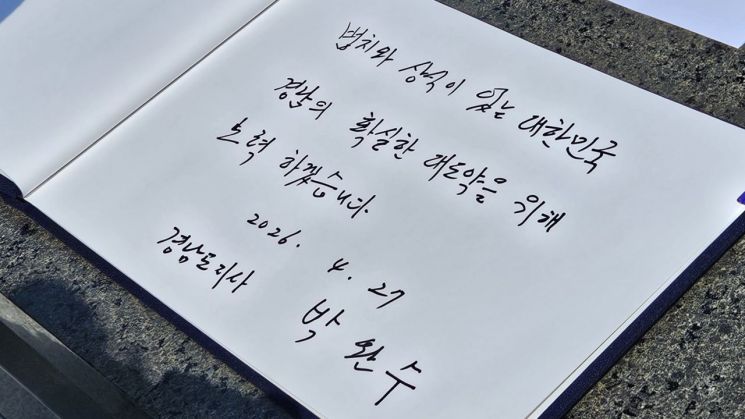 법치와 상식이 있는 대한민국
경남의 확실한 대도약을 위해
노력 하겠습니다.
2026. 4. 27
경남도지사 박완수